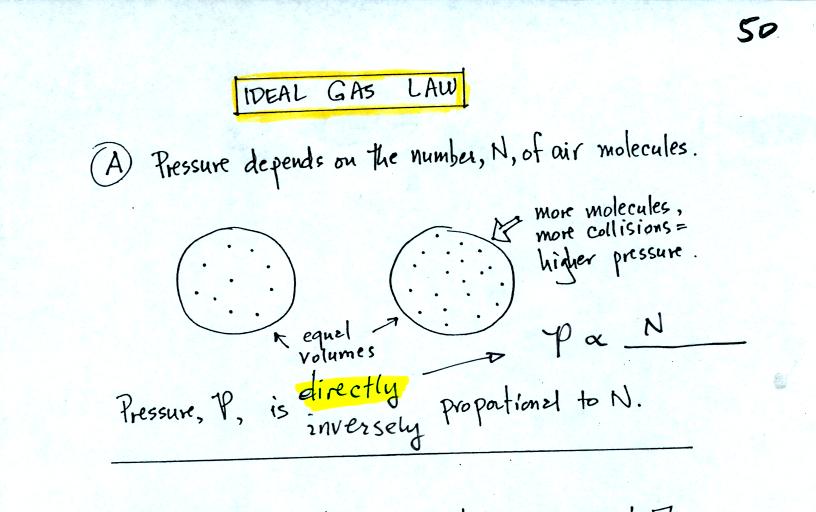 50
IDEAL GAS LAW
A Pressure depends on the number, N, of air molecules.
more molecules,
more collisions =
higher pressure.
equal
volumes
P ∝ N
Pressure, P, is directly
inversely proportional to N.